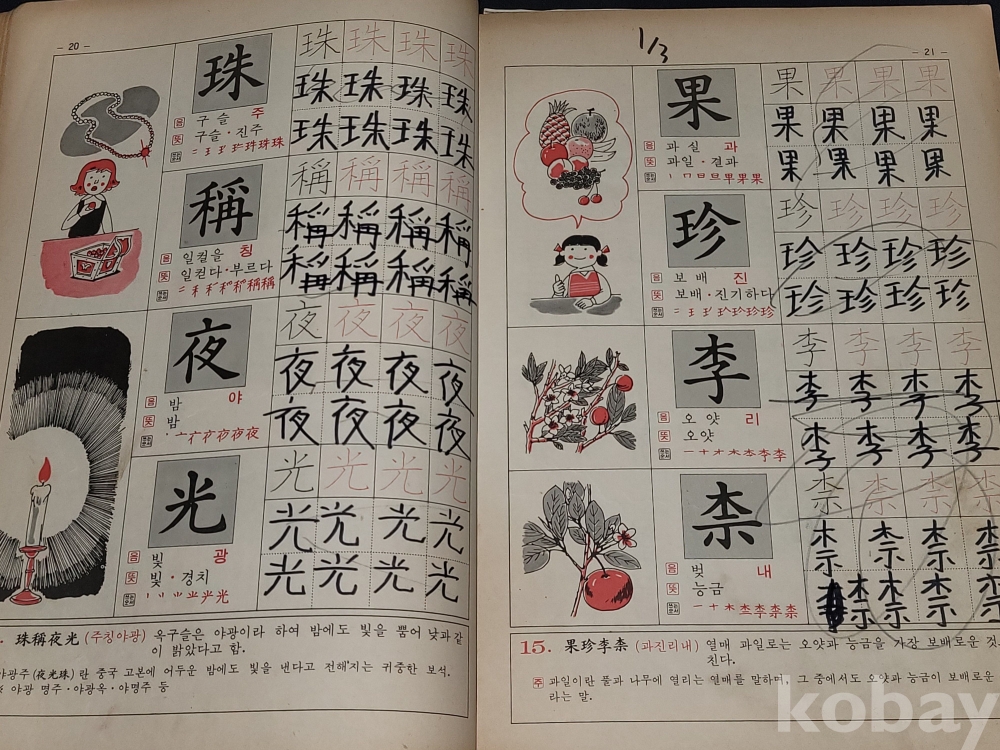 - 20 -
珠
음 구슬 주
뜻 구슬·진주
珠 珠 珠 珠
珠 珠 珠 珠
珠 珠 珠 珠
稱
음 일컬을 칭
뜻 일컫다·부르다
稱 稱 稱 稱
稱 稱 稱 稱
稱 稱 稱 稱
夜
음 밤 야
뜻 밤
夜 夜 夜 夜
夜 夜 夜 夜
夜 夜 夜 夜
光
음 빛 광
뜻 빛·경치
光 光 光 光
光 光 光 光
光 光 光 光
珠稱夜光 (주칭야광) 옥구슬은 야광이라 하여 밤에도 빛을 뿜어 낮과 같
이 밝았다고 함.
야광주(夜光珠)란 중국 고본에 어두운 밤에도 빛을 낸다고 전해지는 귀중한 보석.
※ 야광 명주·야광옥·야명주 등
1/3
- 21 -
果
음 과실 과
뜻 과일·결과
果 果 果 果
果 果 果 果
果 果 果 果
珍
음 보배 진
뜻 보배·진기하다
珍 珍 珍 珍
珍 珍 珍 珍
珍 珍 珍 珍
李
음 오얏 리
뜻 오얏
李 李 李 李
李 李 李 李
李 李 李 李
柰
음 벚 내
뜻 능금
柰 柰 柰 柰
柰 柰 柰 柰
柰 柰 柰 柰
15. 果珍李柰 (과진리내) 열매 과일로는 오얏과 능금을 가장 보배로운 것
친다.
주 과일이란 풀과 나무에 열리는 열매를 말하며, 그 중에서도 오얏과 능금이 보배로운
라는 말.
kobay